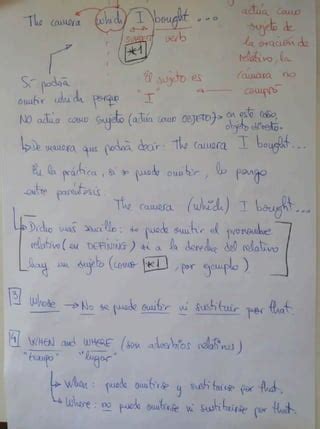 The camera which I bought...
subject verb
*1
actúa como
sujeto de
la oración de
relativo, la
cámara no
compró
El sujeto es
"I"
Sí podría
omitir which porque
NO actúa como sujeto (actúa como OBJETO) → en este caso,
objeto directo.
De manera que podría decir: The camera I bought...
En la práctica, si se puede omitir, lo pongo
entre paréntesis.
The camera (which) I bought...
Dicho más sencillo: se puede omitir el pronombre
relativo (en DEFINING) si a la derecha del relativo
hay un sujeto (como *1, por ejemplo)
3 Whose → No se puede omitir ni sustituir por that.
4 WHEN and WHERE (son adverbios relativos)
"tiempo" "lugar"
When: puede omitirse y sustituirse por that.
Where: no puede omitirse ni sustituirse por that.